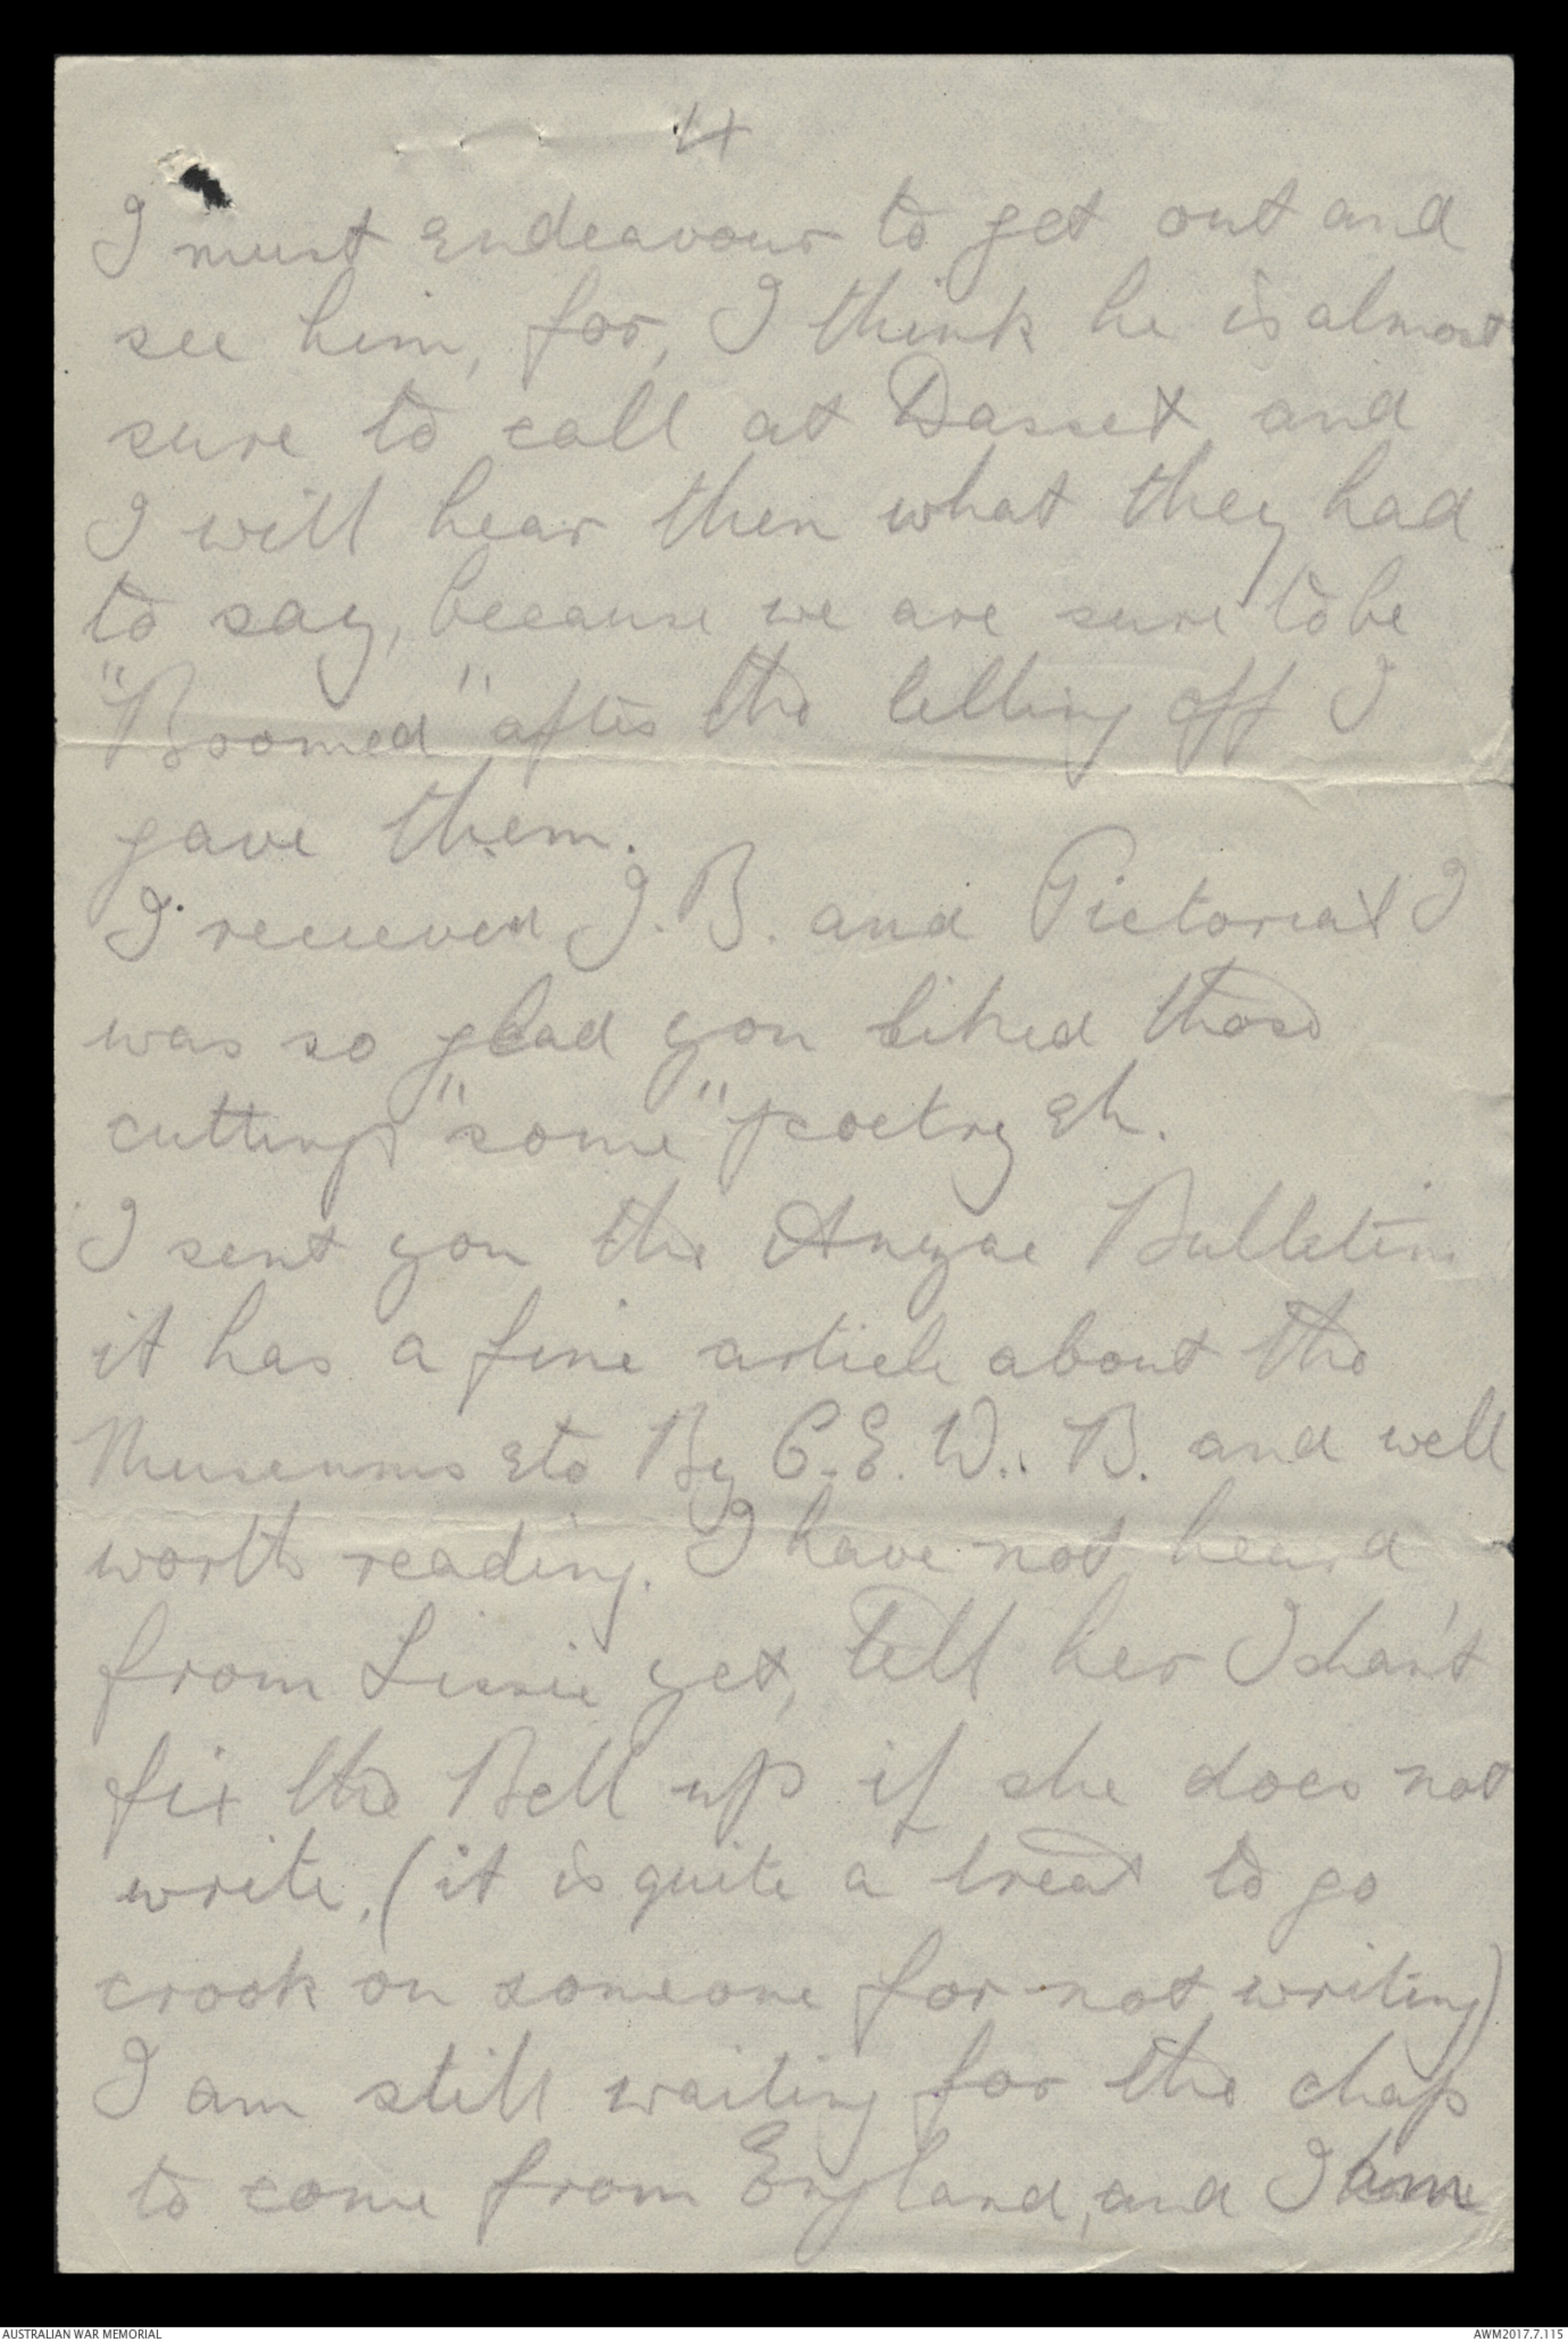 4
I must Endeavour to get out and
see him, for, I think he is almost
sure to call at Dasset and
I will hear then what they had
to say, because we are sure to be
"Boomed" after the telling off I
gave them.
I received J.B. and Pictorial I
was so glad you liked those
cuttings "some" poetry Eh.
I sent you the Anzac Bulletin
it has a fine article about the
Museums Etc By C.E.W.. B. and well
worth reading. I have not heard
from Lissie yet, Tell her I shan't
fix the Bell up if she does not
write, (it is quite a treat to go
crook on someone for not writing)
I am still waiting for the chap
to come from England, and I
AUSTRALIAN WAR MEMORIAL
AWM2017.7.115